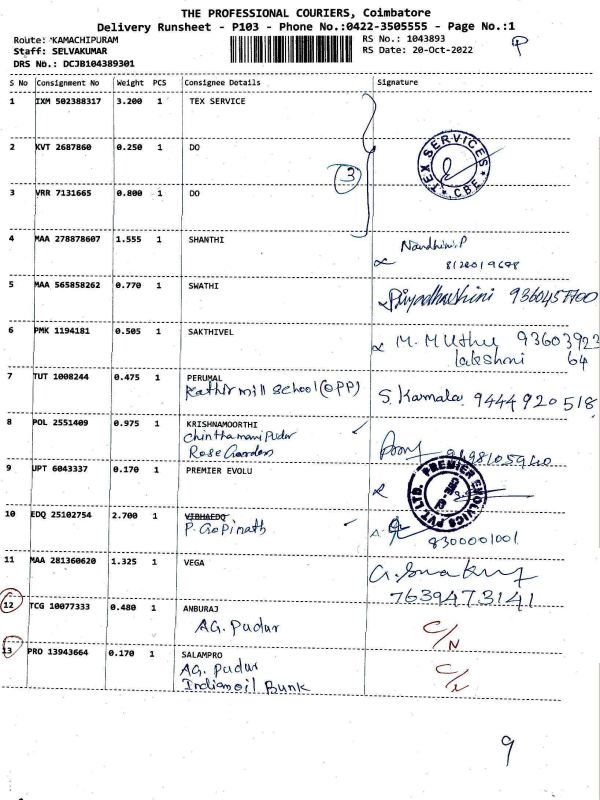 THE PROFESSIONAL COURIERS, Coimbatore
Delivery Runsheet - P103 - Phone No.:0422-3505555 - Page No.:1
Route: 'KAMACHIPURAM RS No.: 1043893
Staff: SELVAKUMAR RS Date: 20-Oct-2022
DRS No.: DCJB104389301
S No Consignment No Weight PCS Consignee Details Signature
1 IXM 502388317 3.200 1 TEX SERVICE
2 KVT 2687860 0.250 1 DO
TEX SERVICES CBE
3
3 VRR 7131665 0.800 1 DO
4 MAA 278878607 1.555 1 SHANTHI Nandhini.P
5 MAA 565858262 0.770 1 SWATHI
6 PMK 1194181 0.505 1 SAKTHIVEL M. Muthu 93603923
lakshmi 64
7 TUT 1008244 0.475 1 PERUMAL
Kathir mill School (OPP) S. Kamala 9444920518
8 POL 2551409 0.975 1 KRISHNAMOORTHI
Chinthamani Pudur
Rose Garden
9 UPT 6043337 0.170 1 PREMIER EVOLU
PREMIER EVOLVICS PVT. LTD. CBE
10 EDQ 25102754 2.700 1 VIBHAEDQ
P. Gopinath 8300001001
11 MAA 281360620 1.325 1 VEGA
7639473141
12 TCG 10077333 0.480 1 ANBURAJ
AG. Pudur C/N
13 PRO 13943664 0.170 1 SALAMPRO
AG. Pudur
Indianoil Bunk
9